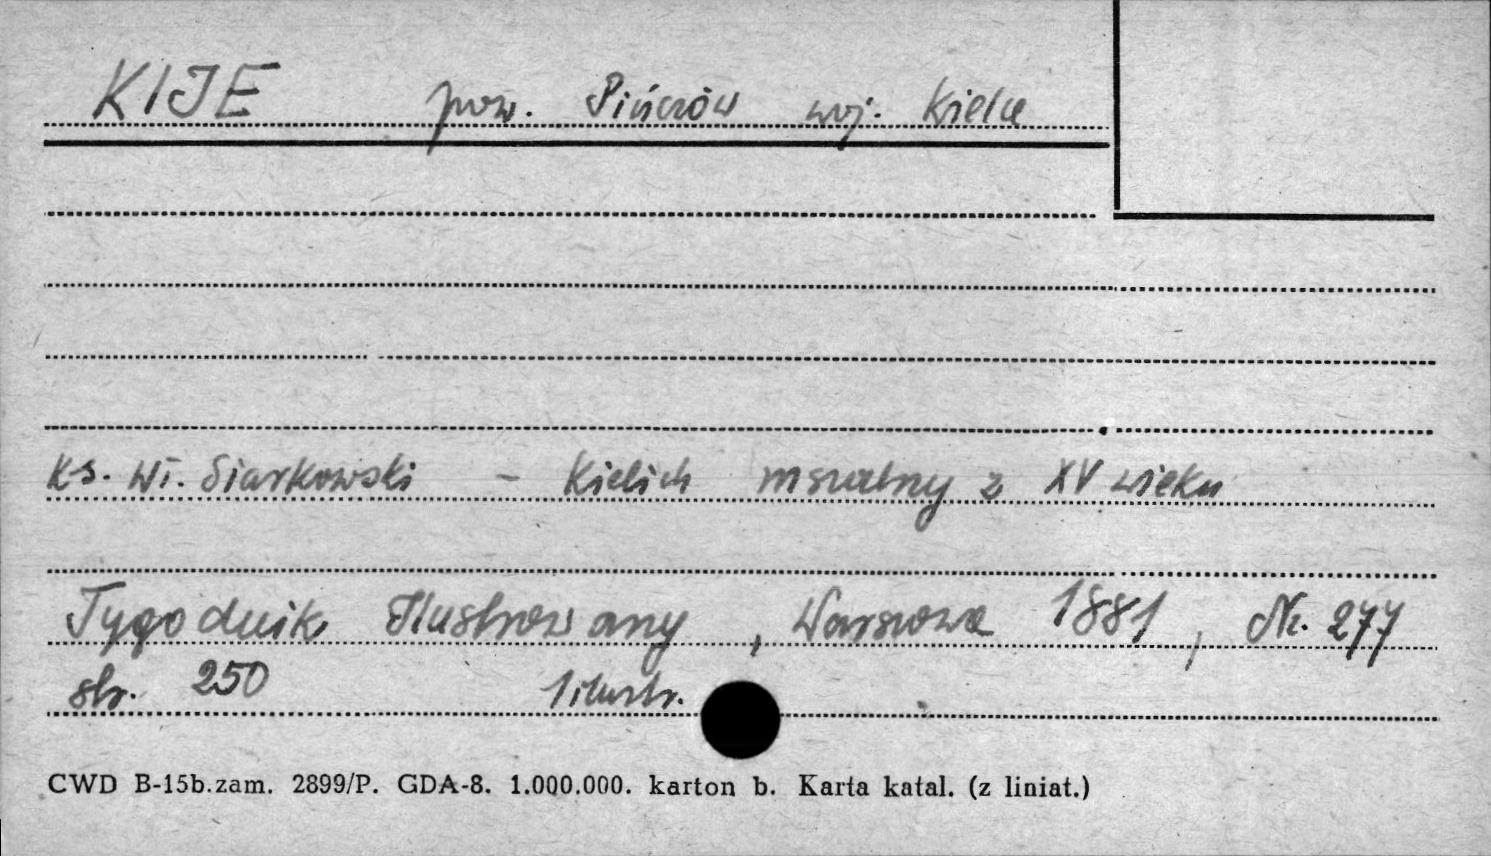 KIJE pow. Pińczów woj. Kielce
Ks. Wł. Siarkowski - Kielich mszalny z XV wieku
Tygodnik Ilustrowany, Warszawa 1881, Nr. 277
str. 250 1 ilustr.
CWD B-15b.zam. 2899/P. GDA-8. 1.000.000. karton b. Karta katal. (z liniat.)